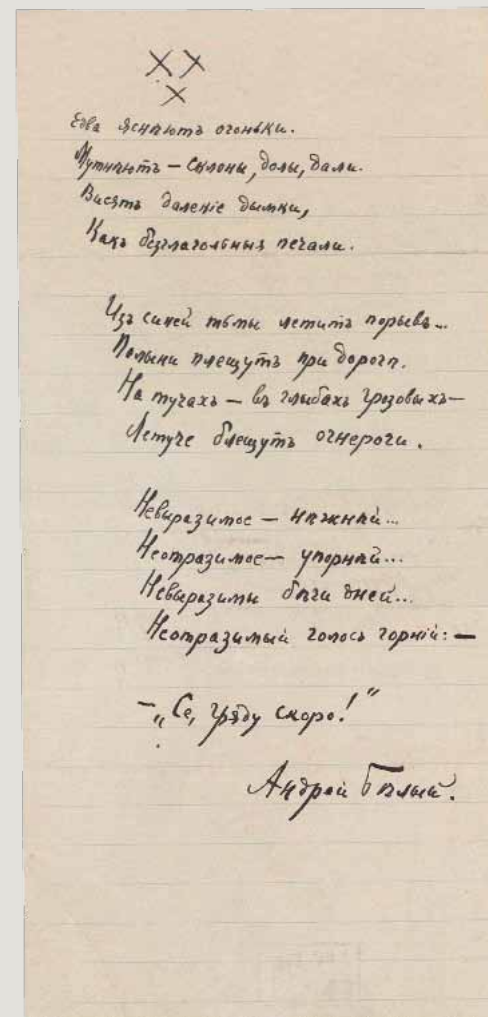 Едва яснѣютъ огоньки.
Мутнѣютъ — склоны, долы, дали.
Висятъ далекіе дымки,
Какъ безглагольныя печали.
Изъ синей тьмы летитъ порывъ...
Полыни плещутъ при дорогѣ.
На тучахъ — въ глыбахъ грозовыхъ —
Летуче блещутъ огнероги.
Невыразимое — нѣжнѣй...
Неотразимое — упорнѣй...
Невыразимы бѣги дней...
Неотразимый голосъ горній: —
— „Се, гряду скоро!“
Андрей Бѣлый.